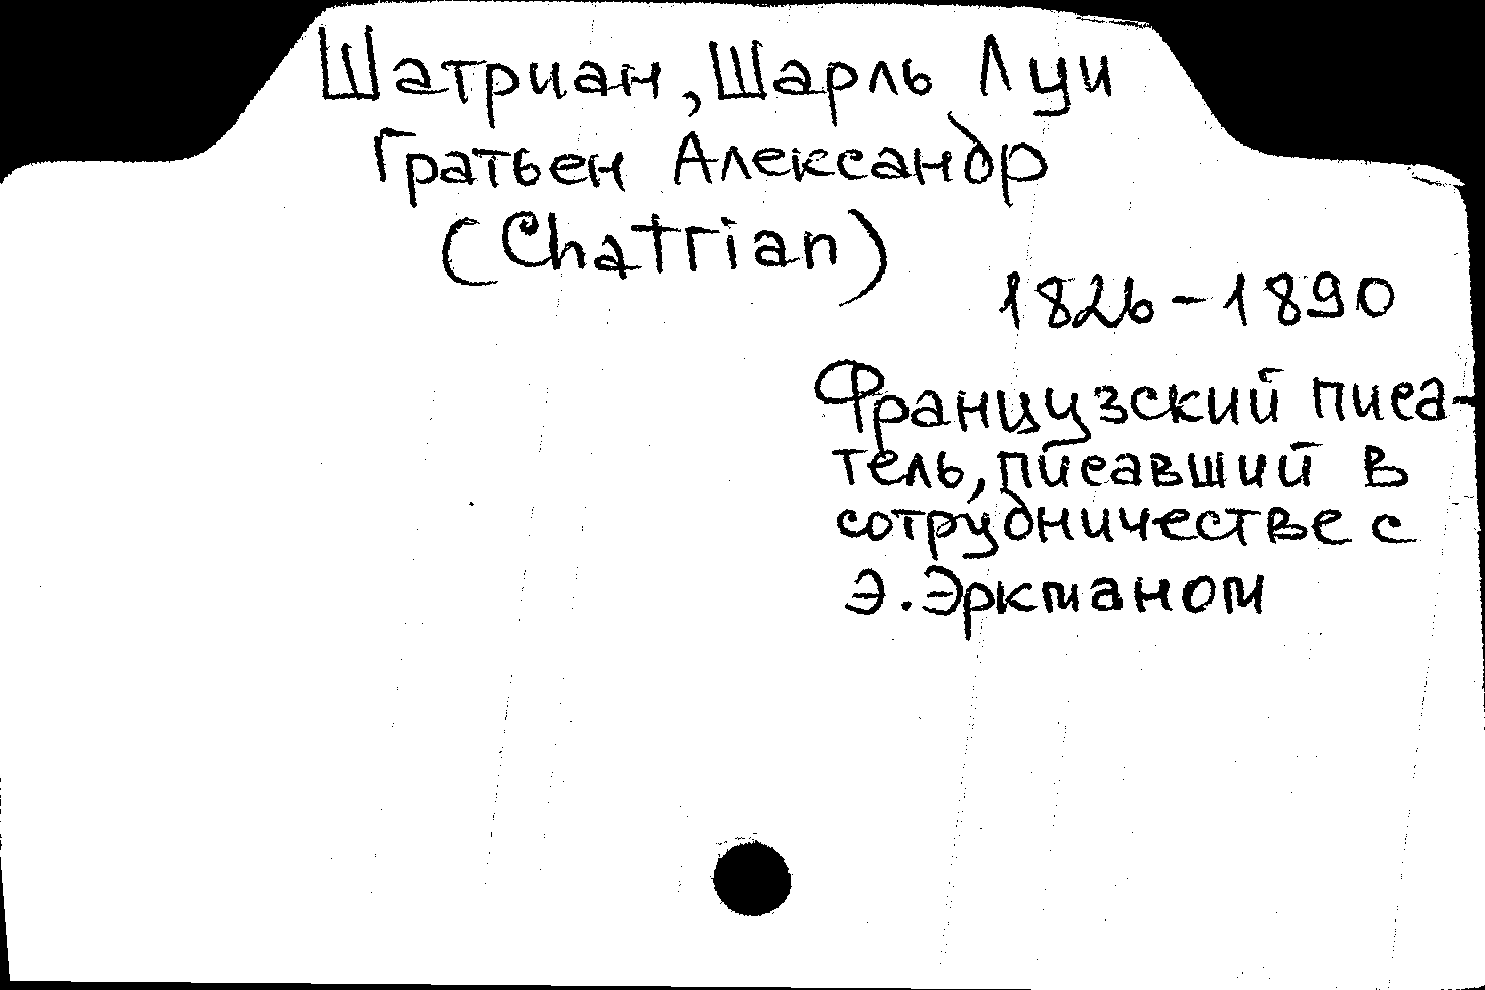 Шатриан, Шарль Луи
Гратьен Александр
(Chatrian)
1826-1890
Французский писа-
тель, писавший в
сотрудничестве с
Э. Эркманом